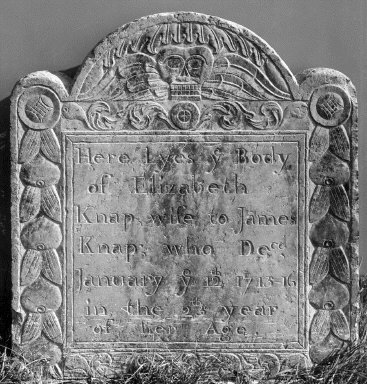 Here Lyes ẏ Body
of Elizabeth
Knap, wife to James
Knap; who Decd
January ẏ 1715-16
in the year
of her Age.